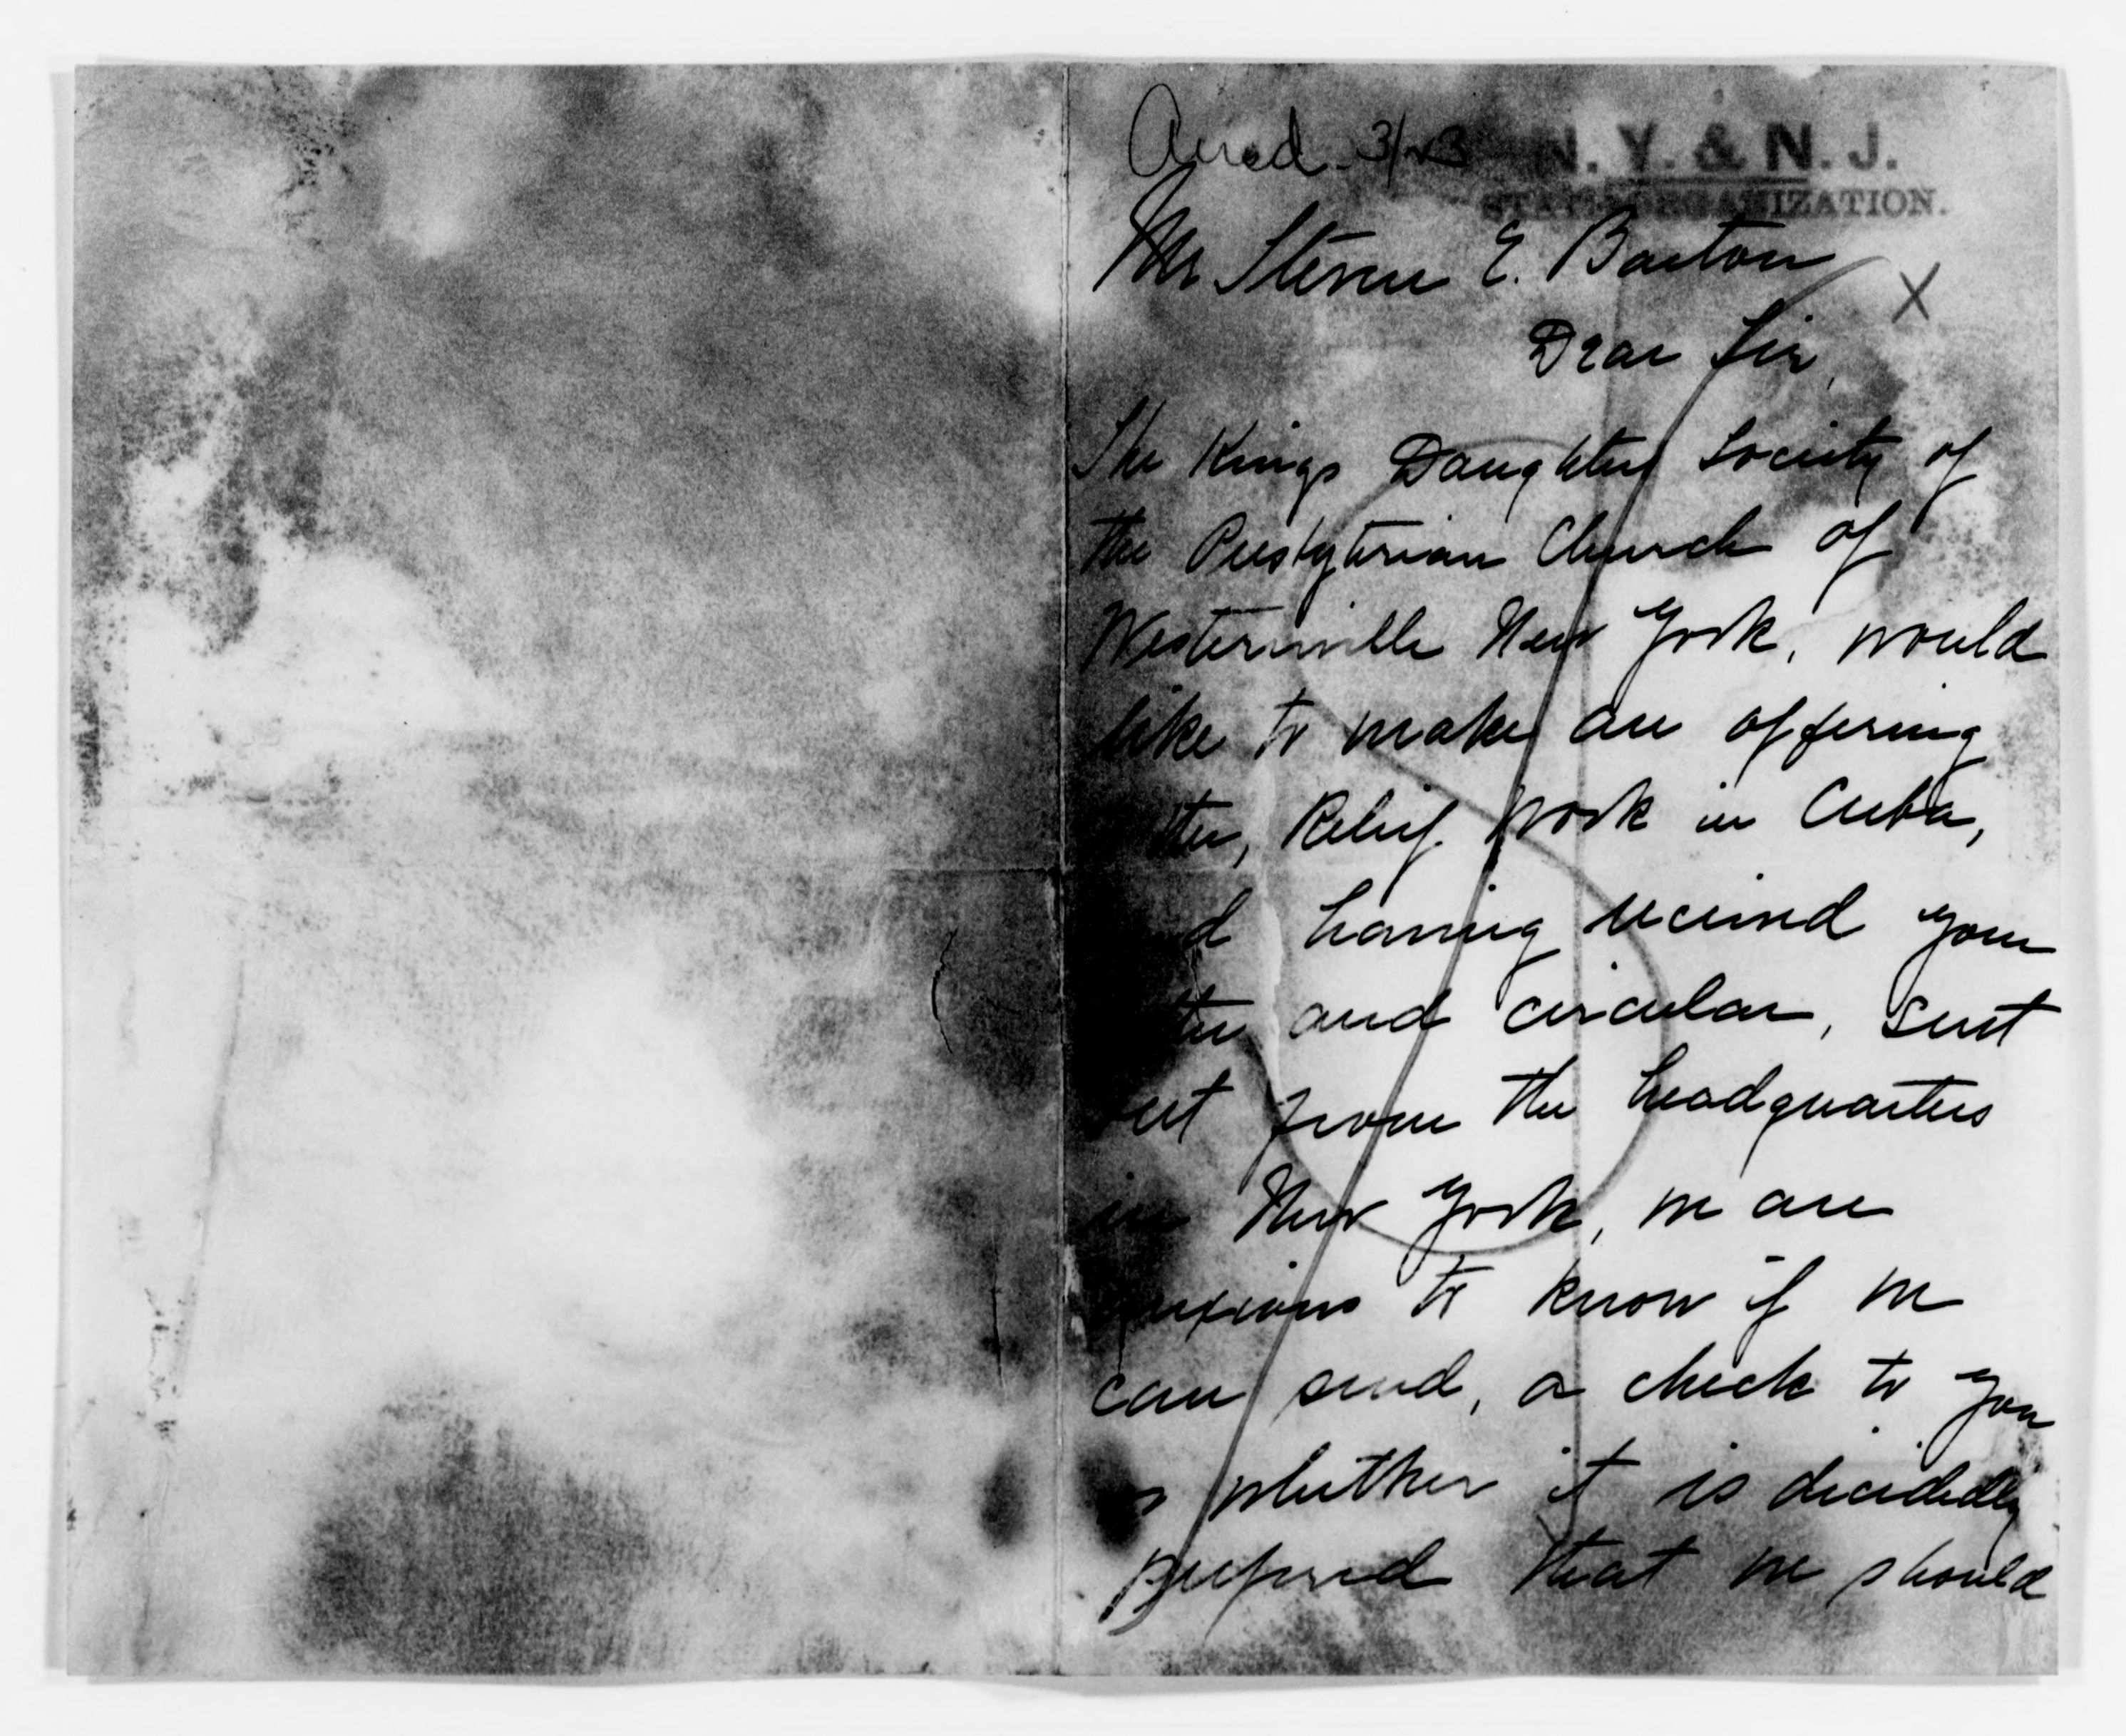 Ansd. 3/23
N. Y. & N. J.
STATE ORGANIZATION.
Mr Steven E. Barton
X
Dear Sir,
The Kings Daughters Society of
the Presbyterian Church of
Westernville New York, would
like to make an offering
the, Relief Work in Cuba,
d having received your
tter and circular, sent
out from the headquarters
in New York, we are
anxious to know if we
can send, a check to you
or whether it is decidedly
prefered that we should